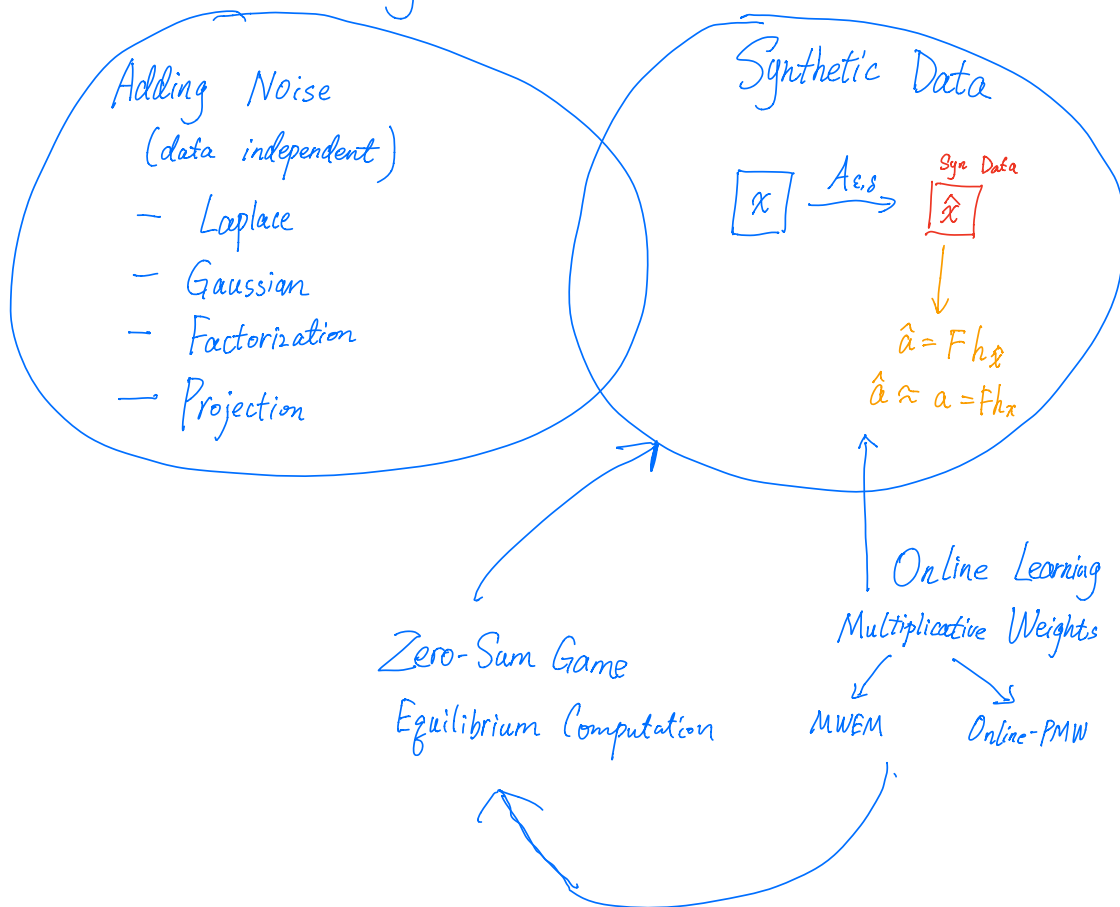 Adding Noise
(data independent)
- Laplace
- Gaussian
- Factorization
- Projection
Synthetic Data
x
A_{ε,δ}
Syn Data
x̂
â = F h_{x̂}
â ≈ a = Fh_x
Online Learning
Multiplicative Weights
MWEM
Online-PMW
Zero-Sum Game
Equilibrium Computation